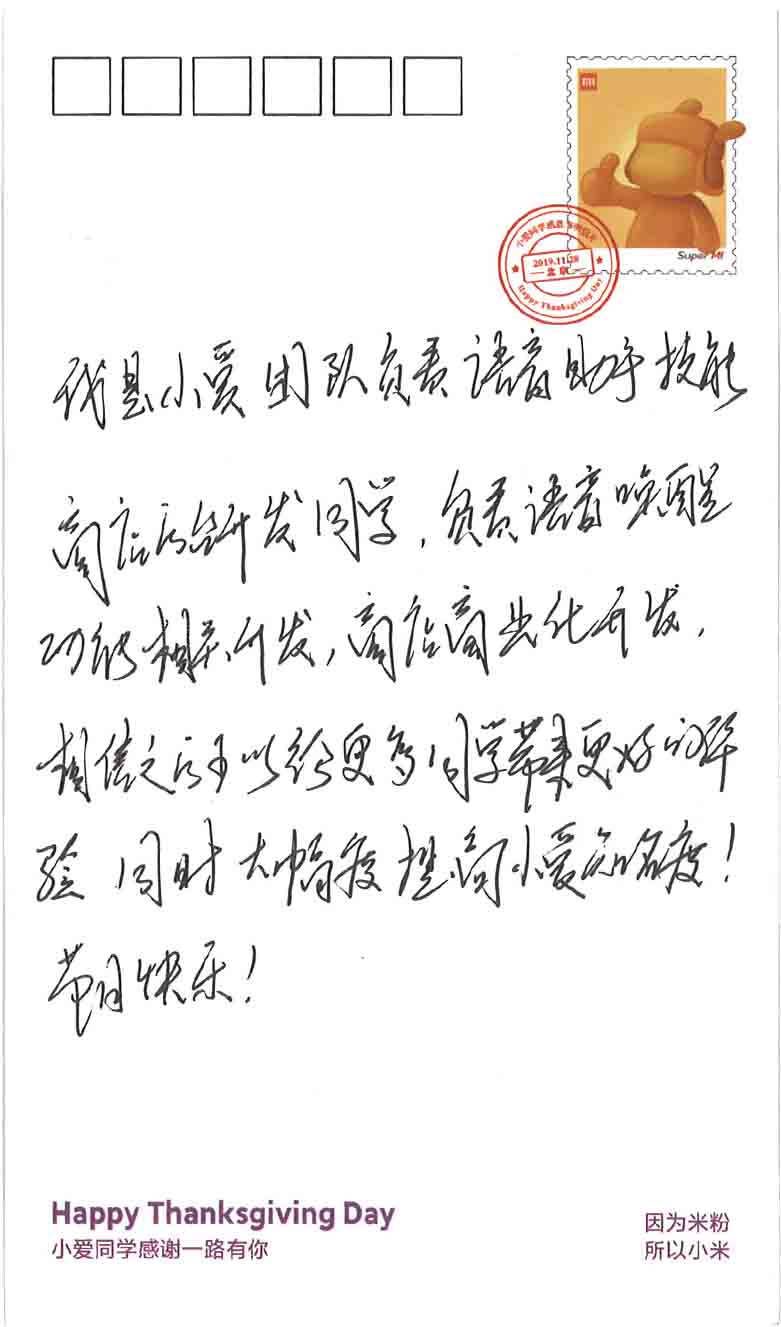 Super MI
小爱同学感恩节明信片
2019.11.28
北京
Happy Thanksgiving Day
我是小爱团队负责语音助手技能
商店的研发同学，负责语音唤醒
功能相关开发，商店商业化开发，
相信之后可以给更多同学带来更好的体
验 同时大幅度提高小爱知名度！
节日快乐！
Happy Thanksgiving Day
小爱同学感谢一路有你
因为米粉
所以小米